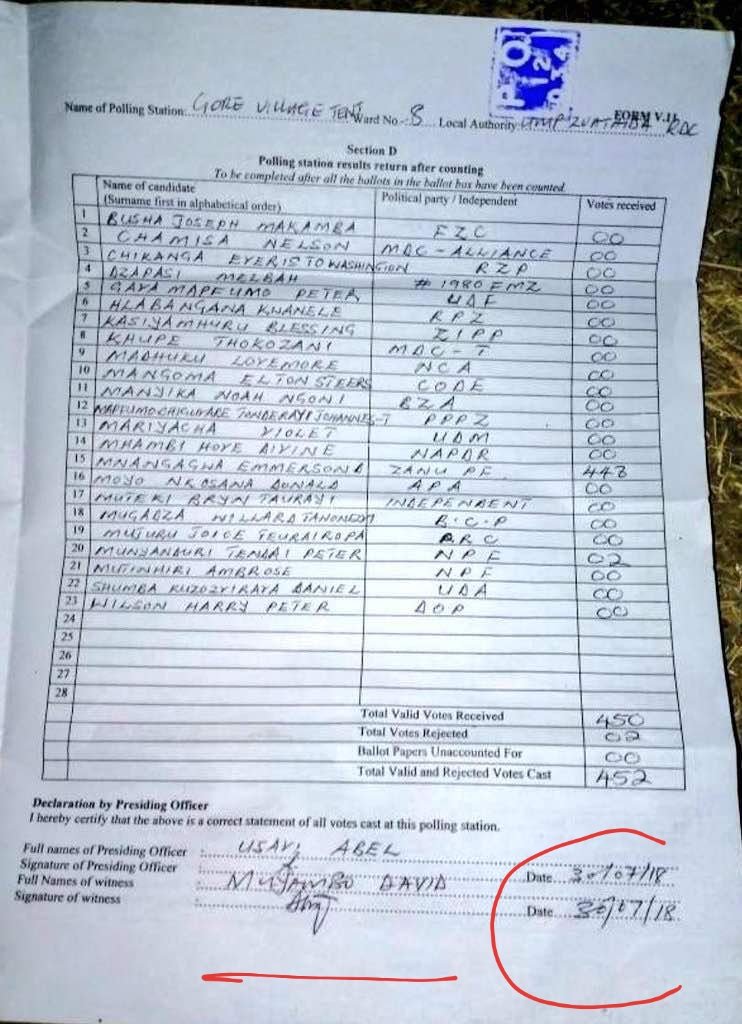 PO
12
034
FORM V.11
Name of Polling Station: GORE VILLAGE TENT Ward No. 8 Local Authority UMP ZVATAIDA RDC
Section D
Polling station results return after counting
To be completed after all the ballots in the ballot box have been counted
Name of candidate (Surname first in alphabetical order) Political party / Independent Votes received
1 BUSHA JOSEPH MAKAMBA FZC 00
2 CHAMISA NELSON MDC-ALLIANCE 00
3 CHIKANGA EVERISTO WASHINGTON RZP 00
4 DZAPASI MELBAH #1980 FMZ 00
5 GAVA MAPFUMO PETER UDF 00
6 HLABANGANA KWANELE RPZ 00
7 KASIYAMHURU BLESSING ZIPP 00
8 KHUPE THOKOZANI MDC-T 00
9 MADHUKU LOVEMORE NCA 00
10 MANGOMA ELTON STEERS CODE 00
11 MANYIKA NOAH NGONI BZA 00
12 MAPFUMO CHIGUVARE TONDERAYI JOHANNES-T PPPZ 00
13 MARIYACHA VIOLET UDM 00
14 MHAMBI HOVE DIVINE NAPDR 00
15 MNANGAGWA EMMERSON D ZANU PF 448
16 MOYO NKOSANA DONALD APA 00
17 MUTEKI BRYN TAURAYI INDEPENDENT 00
18 MUGADZA WILLARD TAWONEZVI B.C.P 00
19 MUJURU JOICE TEURAIROPA PRC 00
20 MUNYANDURI TENDAI PETER NPF 02
21 MUTINHIRI AMBROSE NPF 00
22 SHUMBA KUZOZVIRAVA DANIEL UDA 00
23 WILSON HARRY PETER DOP 00
24
25
26
27
28
Total Valid Votes Received 450
Total Votes Rejected 02
Ballot Papers Unaccounted For 00
Total Valid and Rejected Votes Cast 452
Declaration by Presiding Officer
I hereby certify that the above is a correct statement of all votes cast at this polling station.
Full names of Presiding Officer : USAVI ABEL
Signature of Presiding Officer : Date 30/07/18
Full Names of witness : MUJAMBO DAVID
Signature of witness : Date 30/07/18